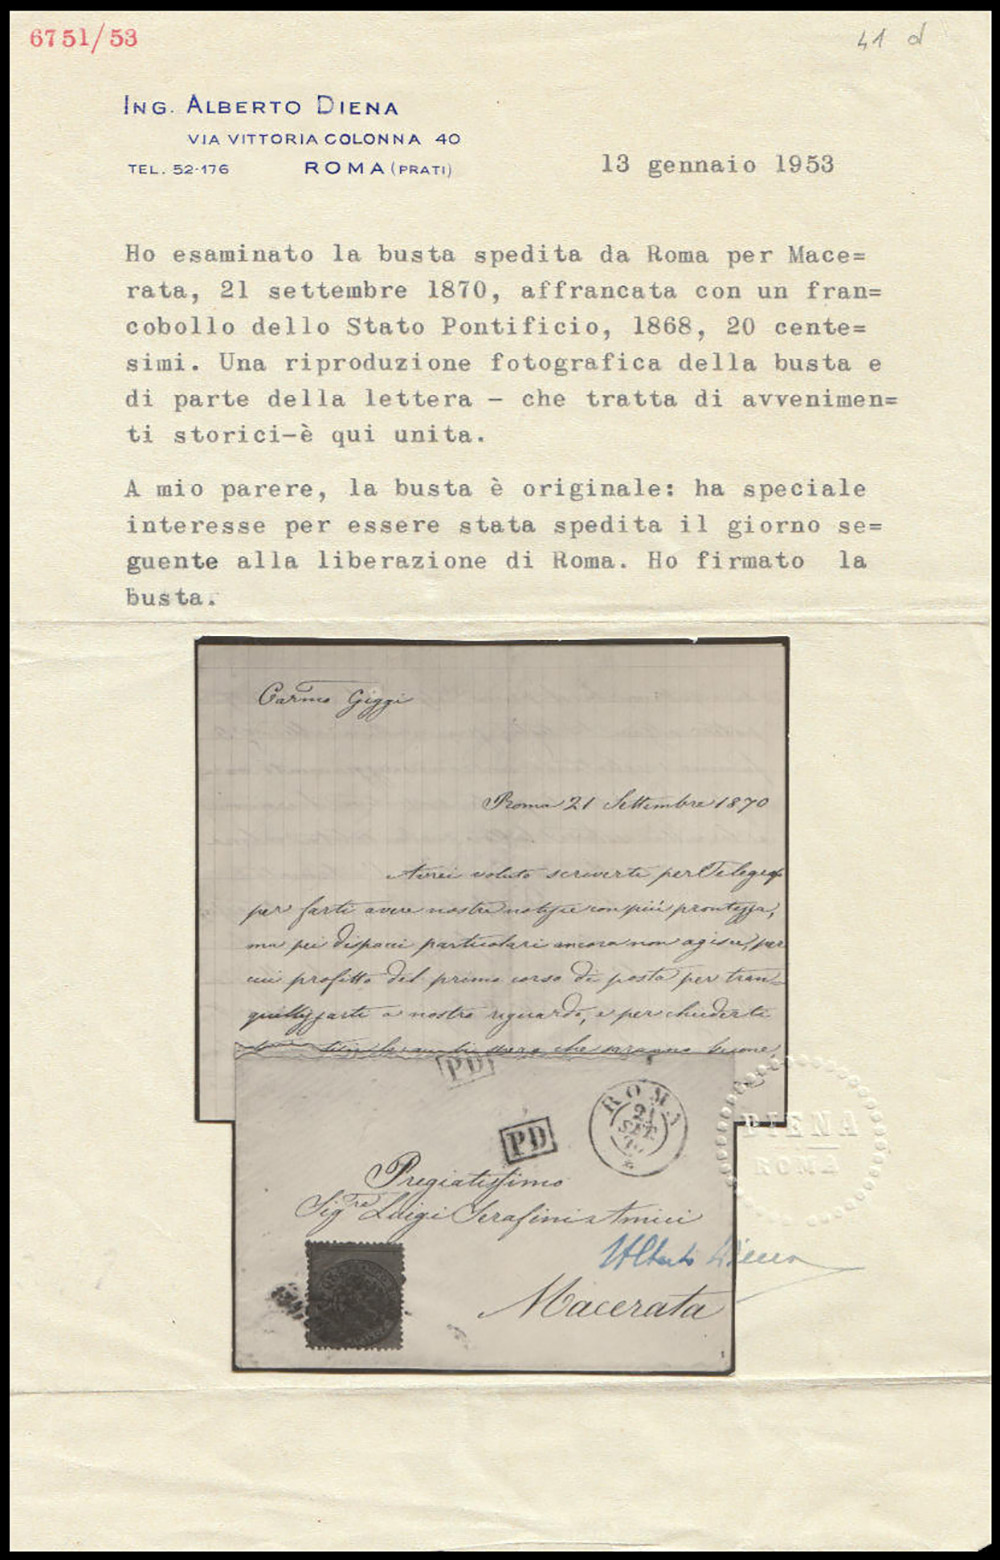 6751/53
41 d
ING. ALBERTO DIENA
VIA VITTORIA COLONNA 40
TEL. 52-176 ROMA (PRATI)
13 gennaio 1953
Ho esaminato la busta spedita da Roma per Mace=
rata, 21 settembre 1870, affrancata con un fran=
cobollo dello Stato Pontificio, 1868, 20 cente=
simi. Una riproduzione fotografica della busta e
di parte della lettera - che tratta di avvenimen=
ti storici-è qui unita.
A mio parere, la busta è originale: ha speciale
interesse per essere stata spedita il giorno se=
guente alla liberazione di Roma. Ho firmato la
busta.
Carmo Giggi
Roma 21 Settembre 1870
Avrei voluto scriverti per
per farti avere nostre notizie con più prontezza,
ma pei dispacci particolari ancora non agisce, per
cui profitto del primo corso di posta per tran=
quillizzarti a nostro riguardo, e per chiederti
che saranno buone,
PD
PD
ROMA
21
SET
DIENA
ROMA
Pregiatissimo
Sigre Luigi Serafini Amici
Alberto Diena
Macerata